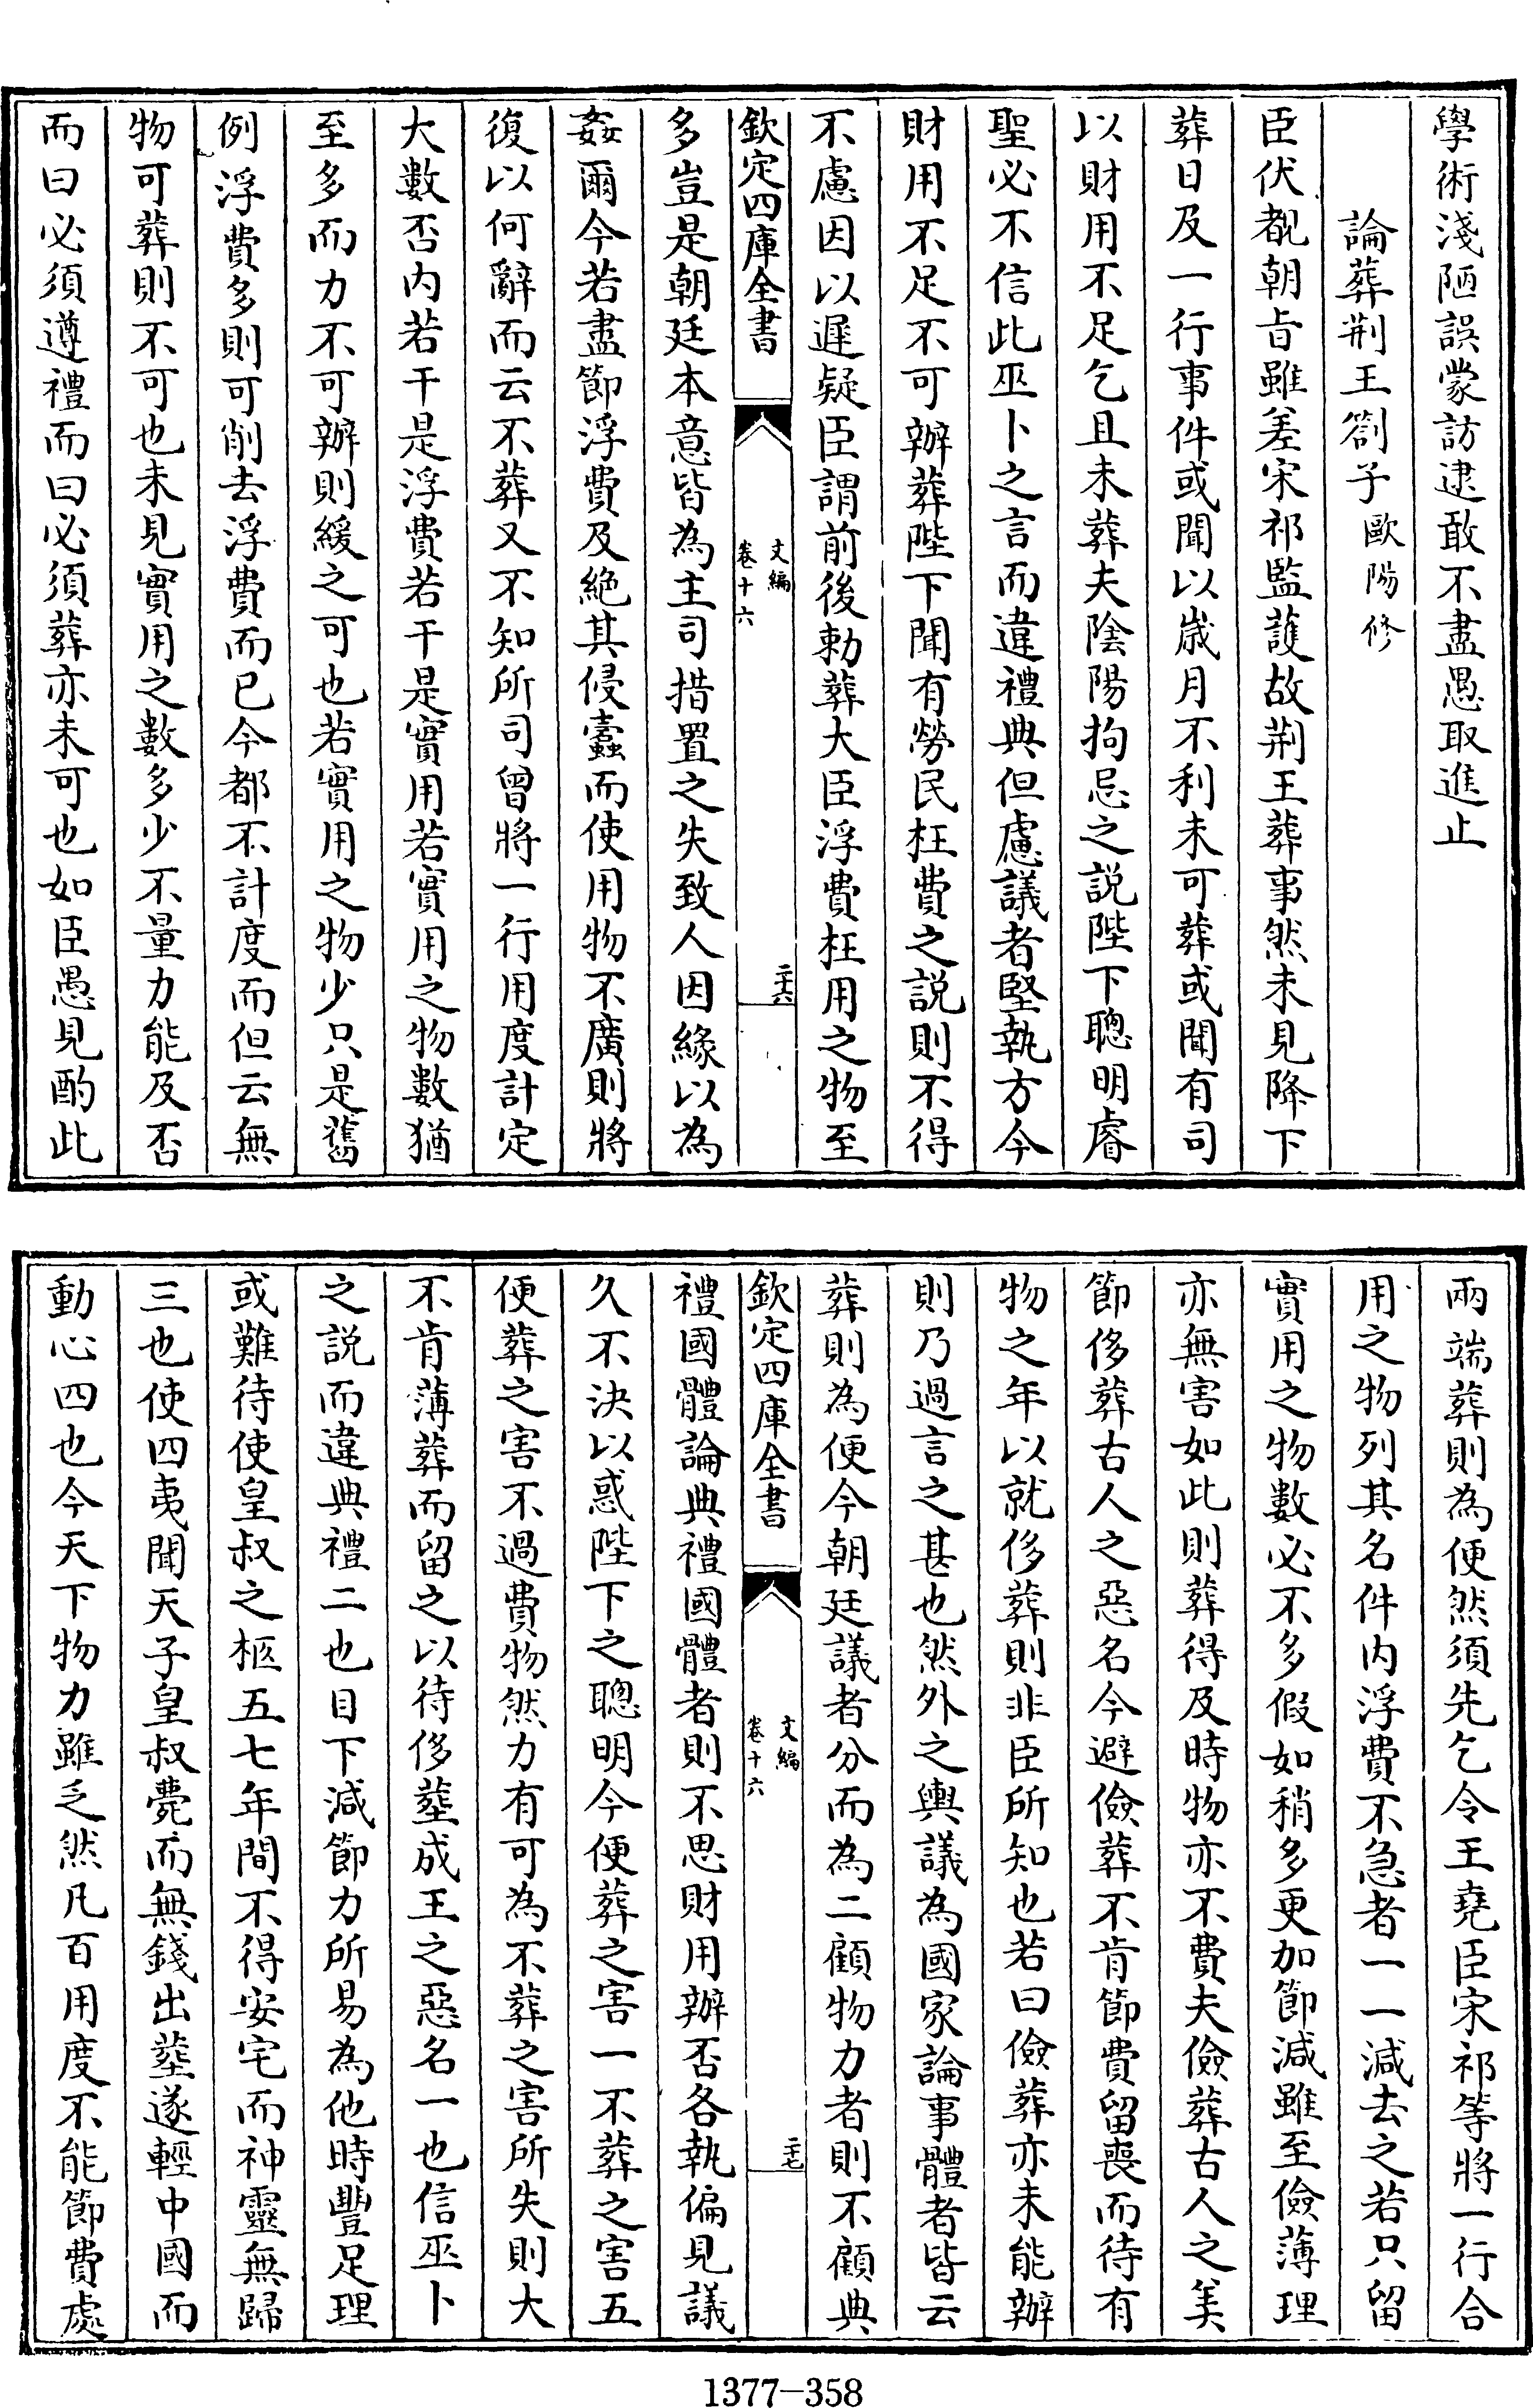 學術淺陋誤蒙訪逮敢不盡愚取進止
論葬荆王劄子歐陽修
臣伏覩朝㫖雖差宋祁監䕶故荆王葬事然未見降下
葬日及一行事件或聞以歳月不利未可葬或聞有司
以財用不足乞且未葬夫陰陽拘忌之説陛下聰明睿
聖必不信此巫卜之言而違禮典但慮議者堅執方今
財用不足不可辦葬陛下聞有勞民枉費之説則不得
不慮因以遲疑臣謂前後勅葬大臣浮費枉用之物至
欽定四庫全書
文編
卷十六
二十六
多豈是朝廷本意皆為主司措置之失致人因緣以為
姦爾今若盡節浮費及絶其侵蠧而使用物不廣則將
復以何辭而云不葬又不知所司曾將一行用度計定
大數否内若干是浮費若干是實用若實用之物數猶
至多而力不可辦則緩之可也若實用之物少只是舊
例浮費多則可削去浮費而已今都不計度而但云無
物可葬則不可也未見實用之數多少不量力能及否
而曰必須遵禮而曰必須葬亦未可也如臣愚見酌此
兩端葬則為便然須先乞令王堯臣宋祁等將一行合
用之物列其名件内浮費不急者一一減去之若只留
實用之物數必不多假如稍多更加節減雖至儉薄理
亦無害如此則葬得及時物亦不費夫儉葬古人之美
節侈葬古人之惡名今避儉葬不肯節費留喪而待有
物之年以就侈葬則非臣所知也若曰儉葬亦未能辦
則乃過言之甚也然外之輿議為國家論事體者皆云
葬則為便今朝廷議者分而為二顧物力者則不顧典
欽定四庫全書
文編
卷十六
二十七
禮國體論典禮國體者則不思財用辦否各執偏見議
久不決以惑陛下之聰明今便葬之害一不葬之害五
便葬之害不過費物然力有可為不葬之害所失則大
不肯薄葬而留之以待侈塟成王之惡名一也信巫卜
之説而違典禮二也目下減節力所易為他時豐足理
或難待使皇叔之柩五七年間不得安宅而神靈無歸
三也使四夷聞天子皇叔薨而無錢出塟遂輕中國而
動心四也今天下物力雖乏然凡百用度不能節費處
1377-358